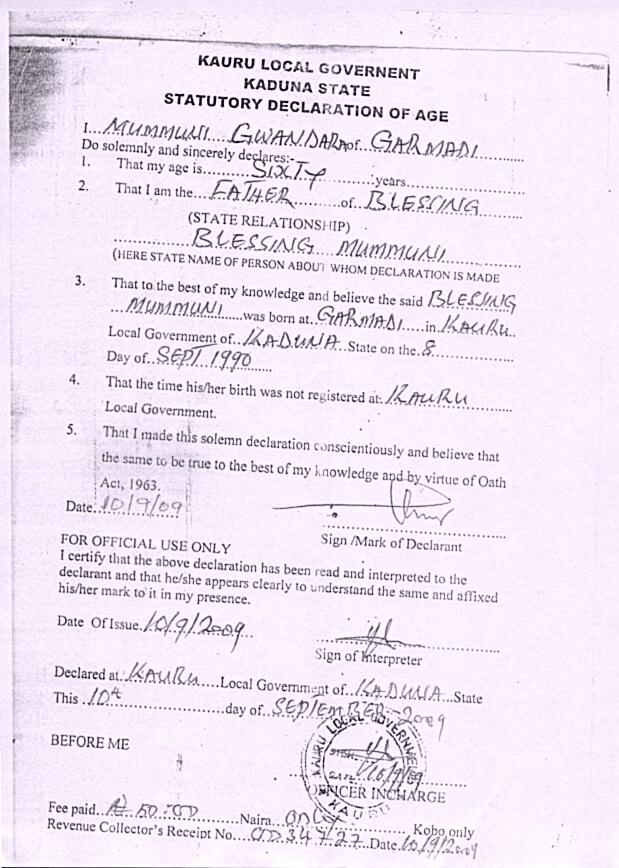 KAURU LOCAL GOVERNENT
KADUNA STATE
STATUTORY DECLARATION OF AGE
I...MUMMUNI GWANDARA of GARMADI
Do solemnly and sincerely declares:-
1. That my age is SIXTY years
2. That I am the FATHER of BLESSING
(STATE RELATIONSHIP)
BLESSING MUMMUNI
(HERE STATE NAME OF PERSON ABOUT WHOM DECLARATION IS MADE
3. That to the best of my knowledge and believe the said BLESSING
MUMMUNI was born at GARMADI in KAURU
Local Government of KADUNA State on the 8
Day of SEPT 1990
4. That the time his/her birth was not registered at KAURU
Local Government.
5. That I made this solemn declaration conscientiously and believe that
the same to be true to the best of my knowledge and by virtue of Oath
Act, 1963.
Date 10/9/09
Sign /Mark of Declarant
FOR OFFICIAL USE ONLY
I certify that the above declaration has been read and interpreted to the
declarant and that he/she appears clearly to understand the same and affixed
his/her mark to it in my presence.
Date Of Issue 10/9/2009
Sign of Interpreter
Declared at KAURU Local Government of KADUNA State
This 10th day of SEPTEMBER - 2009
BEFORE ME
KAURU LOCAL GOVERNMENT
SIGN
DATE 10/9/09
KAURU
OFFICER INCHARGE
Fee paid ₦ 50:00 Naira ONLY Kobo only
Revenue Collector's Receipt No. 34727 Date 10/9/2009